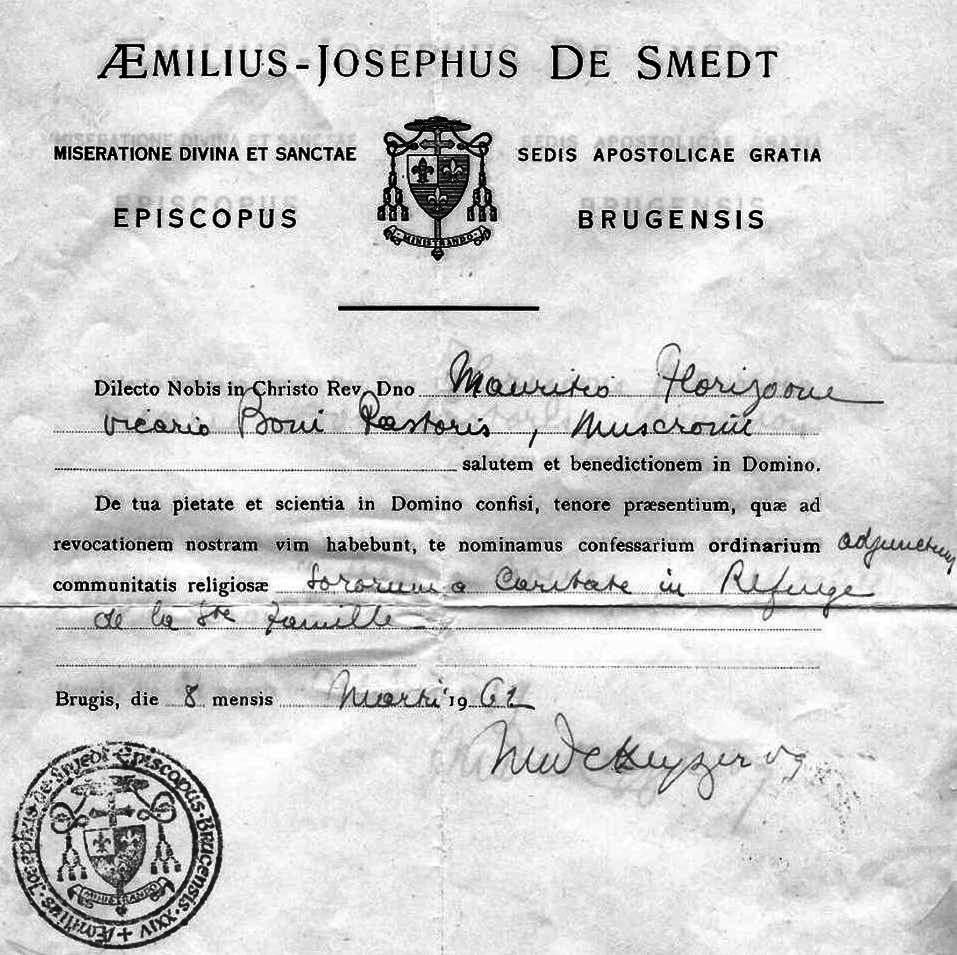 ÆMILIUS-JOSEPHUS DE SMEDT
MISERATIONE DIVINA ET SANCTAE SEDIS APOSTOLICAE GRATIA
EPISCOPUS BRUGENSIS
MINISTRANDO
Dilecto Nobis in Christo Rev. Dno Mauritio Florizoone
vicario Boni Pastoris, Muscronii
salutem et benedictionem in Domino.
De tua pietate et scientia in Domino confisi, tenore præsentium, quæ ad
revocationem nostram vim habebunt, te nominamus confessarium ordinarium adjunctum
communitatis religiosæ Sororum a Caritate in Refuge
de la Ste Famille
Brugis, die 8 mensis Martii 19 62
De Keyzer vg
Æmilius · Josephus · de · Smedt · Episcopus · Brugensis · XXIV
MINISTRANDO